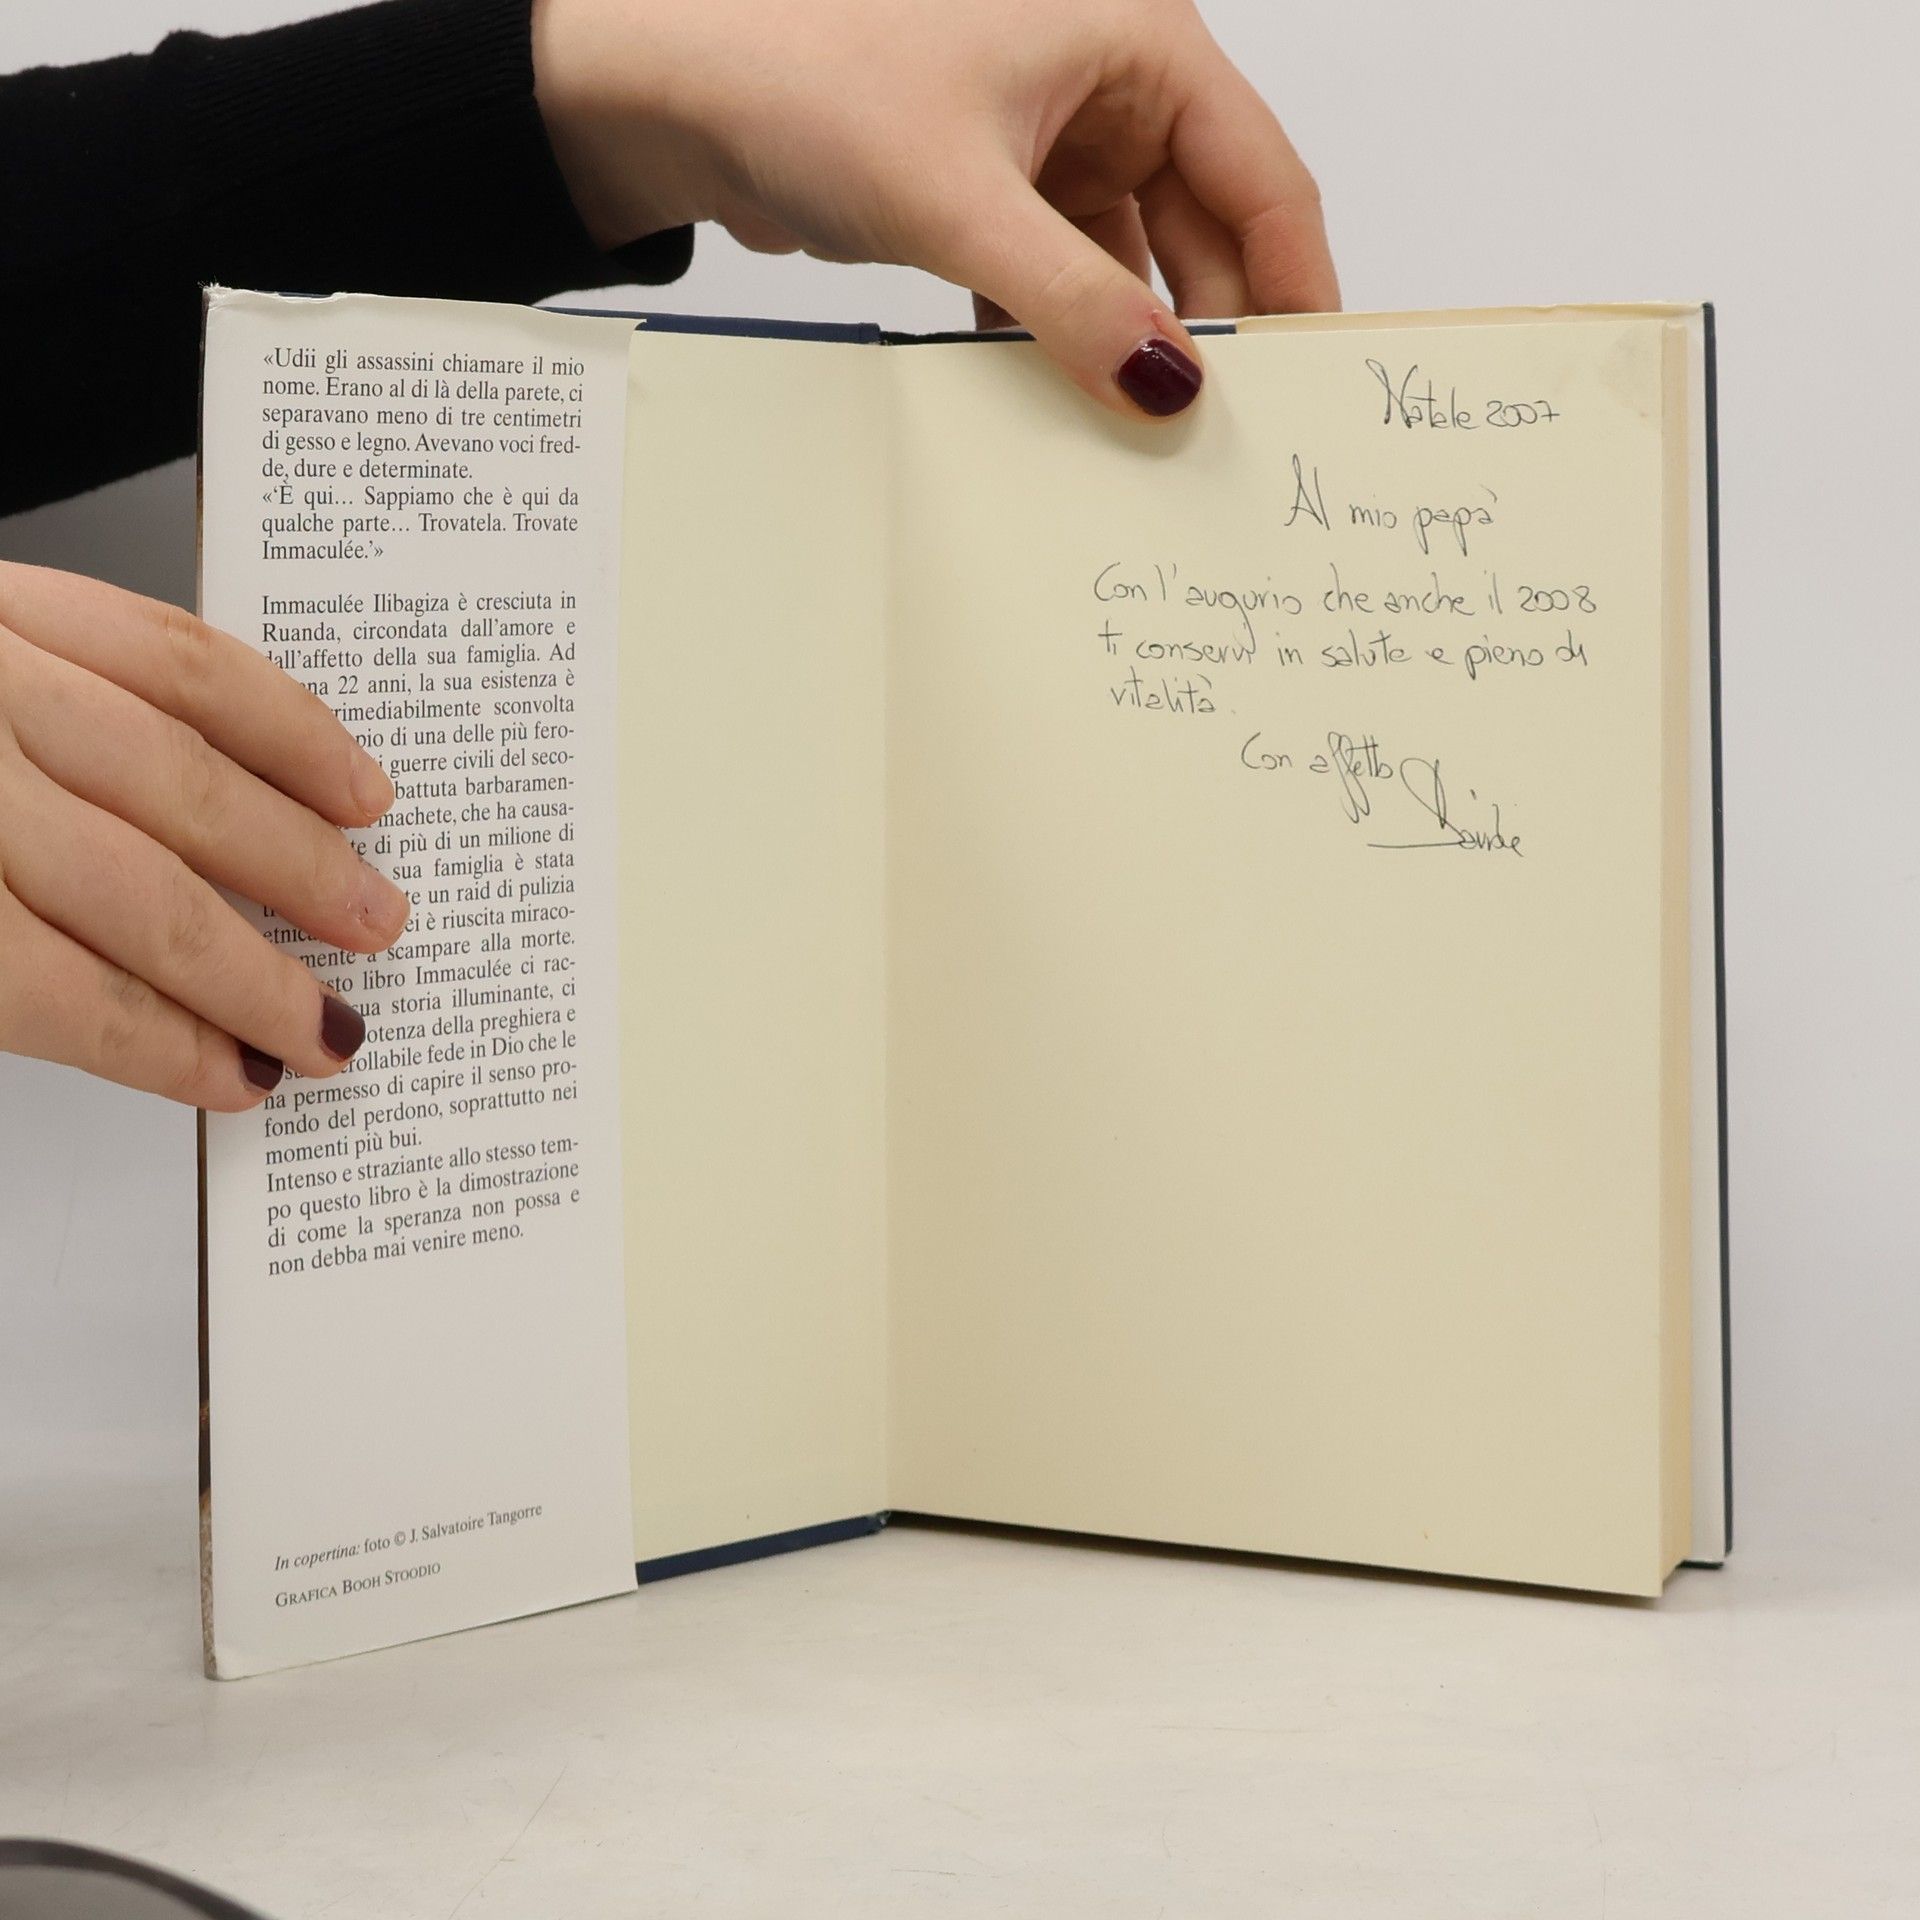 «Udii gli assassini chiamare il mio
nome. Erano al di là della parete, ci
separavano meno di tre centimetri
di gesso e legno. Avevano voci fred-
de, dure e determinate.
«‘È qui… Sappiamo che è qui da
qualche parte… Trovatela. Trovate
Immaculée.’»
Immaculée Ilibagiza è cresciuta in
Ruanda, circondata dall'amore e
dall'affetto della sua famiglia. Ad
22 anni, la sua esistenza è
sconvolta
di una delle più fero-
guerre civili del seco-
barbaramen-
machete, che ha causa-
di più di un milione di
sua famiglia è stata
un raid di pulizia
è riuscita miraco-
scampare alla morte.
libro Immaculée ci rac-
storia illuminante, ci
della preghiera e
fede in Dio che le
ha permesso di capire il senso pro-
fondo del perdono, soprattutto nei
momenti più bui.
Intenso e straziante allo stesso tem-
po questo libro è la dimostrazione
di come la speranza non possa e
non debba mai venire meno.
In copertina: foto © J. Salvatoire Tangorre
GRAFICA BOOH STOODIO
Natale 2007
Al mio papà
Con l'augurio che anche il 2008
ti conservi in salute e pieno di
vitalità.
Con affetto
Davide